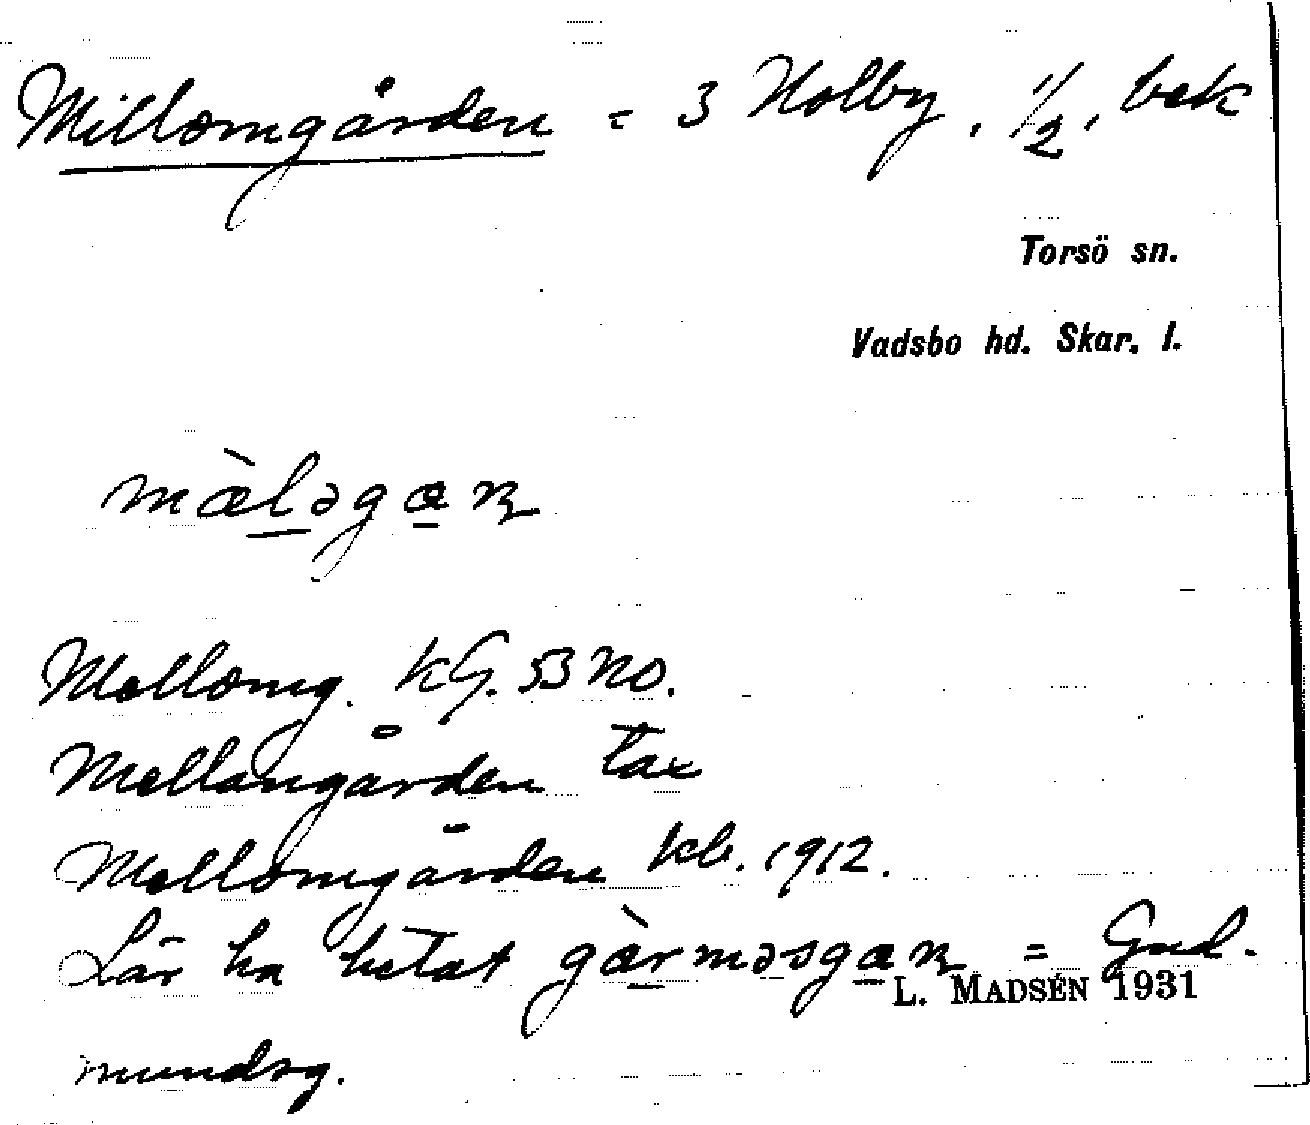 Millomgården = 3 Holby, 1/2, bek
Torsö sn.
Vadsbo hd. Skar. l.
mæ̀ləgaɳ
Mellomg. KG. 53 no.
Mellangården tax
Mellomgården kb. 1912.
Lär ha hetat gærməsgaɳ = Gud-
L. MADSÉN 1931
mundsg.